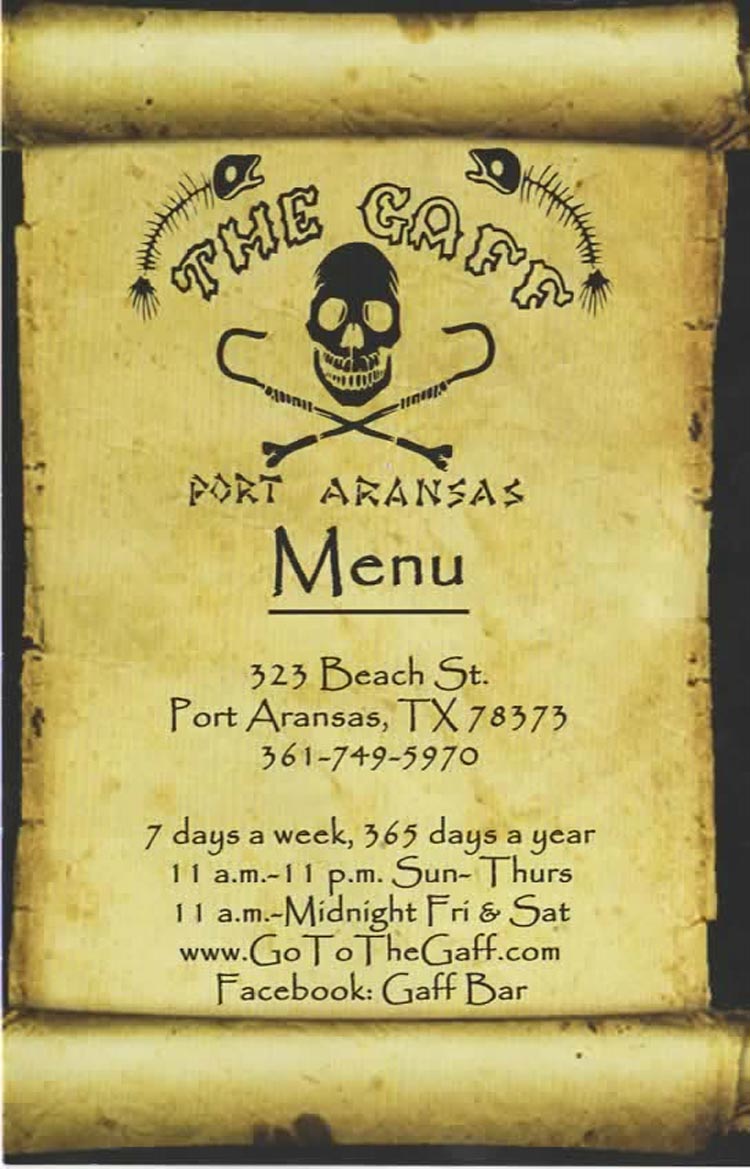 THE GAFF
PORT ARANSAS
Menu
323 Beach St.
Port Aransas, TX 78373
361-749-5970
7 days a week, 365 days a year
11 a.m.-11 p.m. Sun- Thurs
11 a.m.-Midnight Fri & Sat
www.GoToTheGaff.com
Facebook: Gaff Bar